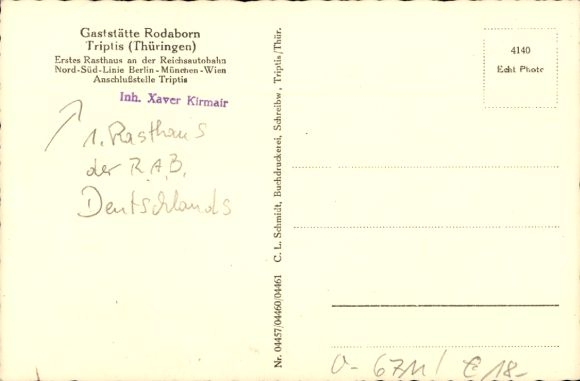 Gaststätte Rodaborn
Triptis (Thüringen)
Erstes Rasthaus an der Reichsautobahn
Nord-Süd-Linie Berlin-München-Wien
Anschlußstelle Triptis
Inh. Xaver Kirmair
1. Rasthaus
der R.A.B.
Deutschlands
Nr. 04457/04460/04461 C. L. Schmidt, Buchdruckerei, Schreibw., Triptis/Thür.
4140
Echt Photo
€ 18-